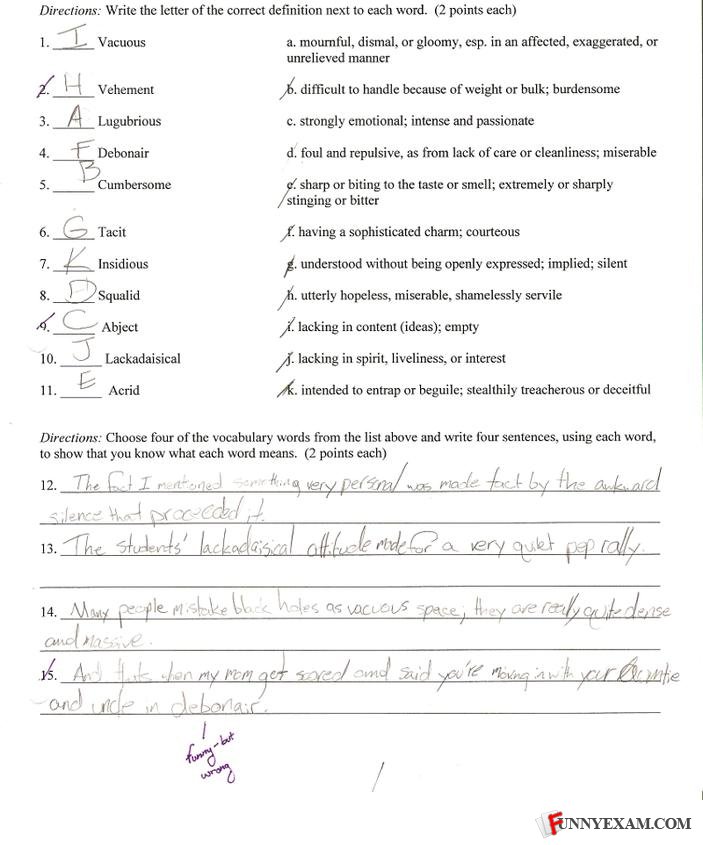 Directions: Write the letter of the correct definition next to each word. (2 points each)
1. I Vacuous a. mournful, dismal, or gloomy, esp. in an affected, exaggerated, or
unrelieved manner
2. H Vehement b. difficult to handle because of weight or bulk; burdensome
3. A Lugubrious c. strongly emotional; intense and passionate
4. F Debonair d. foul and repulsive, as from lack of care or cleanliness; miserable
5. B Cumbersome e. sharp or biting to the taste or smell; extremely or sharply
stinging or bitter
6. G Tacit f. having a sophisticated charm; courteous
7. K Insidious g. understood without being openly expressed; implied; silent
8. D Squalid h. utterly hopeless, miserable, shamelessly servile
9. C Abject i. lacking in content (ideas); empty
10. J Lackadaisical j. lacking in spirit, liveliness, or interest
11. E Acrid k. intended to entrap or beguile; stealthily treacherous or deceitful
Directions: Choose four of the vocabulary words from the list above and write four sentences, using each word,
to show that you know what each word means. (2 points each)
12. The fact I mentioned something very personal was made tact by the awkward
silence that proceeded it.
13. The students' lackadaisical attitude made for a very quiet pep rally.
14. Many people mistake black holes as vacuous space; they are really quite dense
and massive.
15. And thats when my mom got scared and said you're moving in with your auntie
and uncle in debonair.
funny-but
wrong
FUNNYEXAM.COM